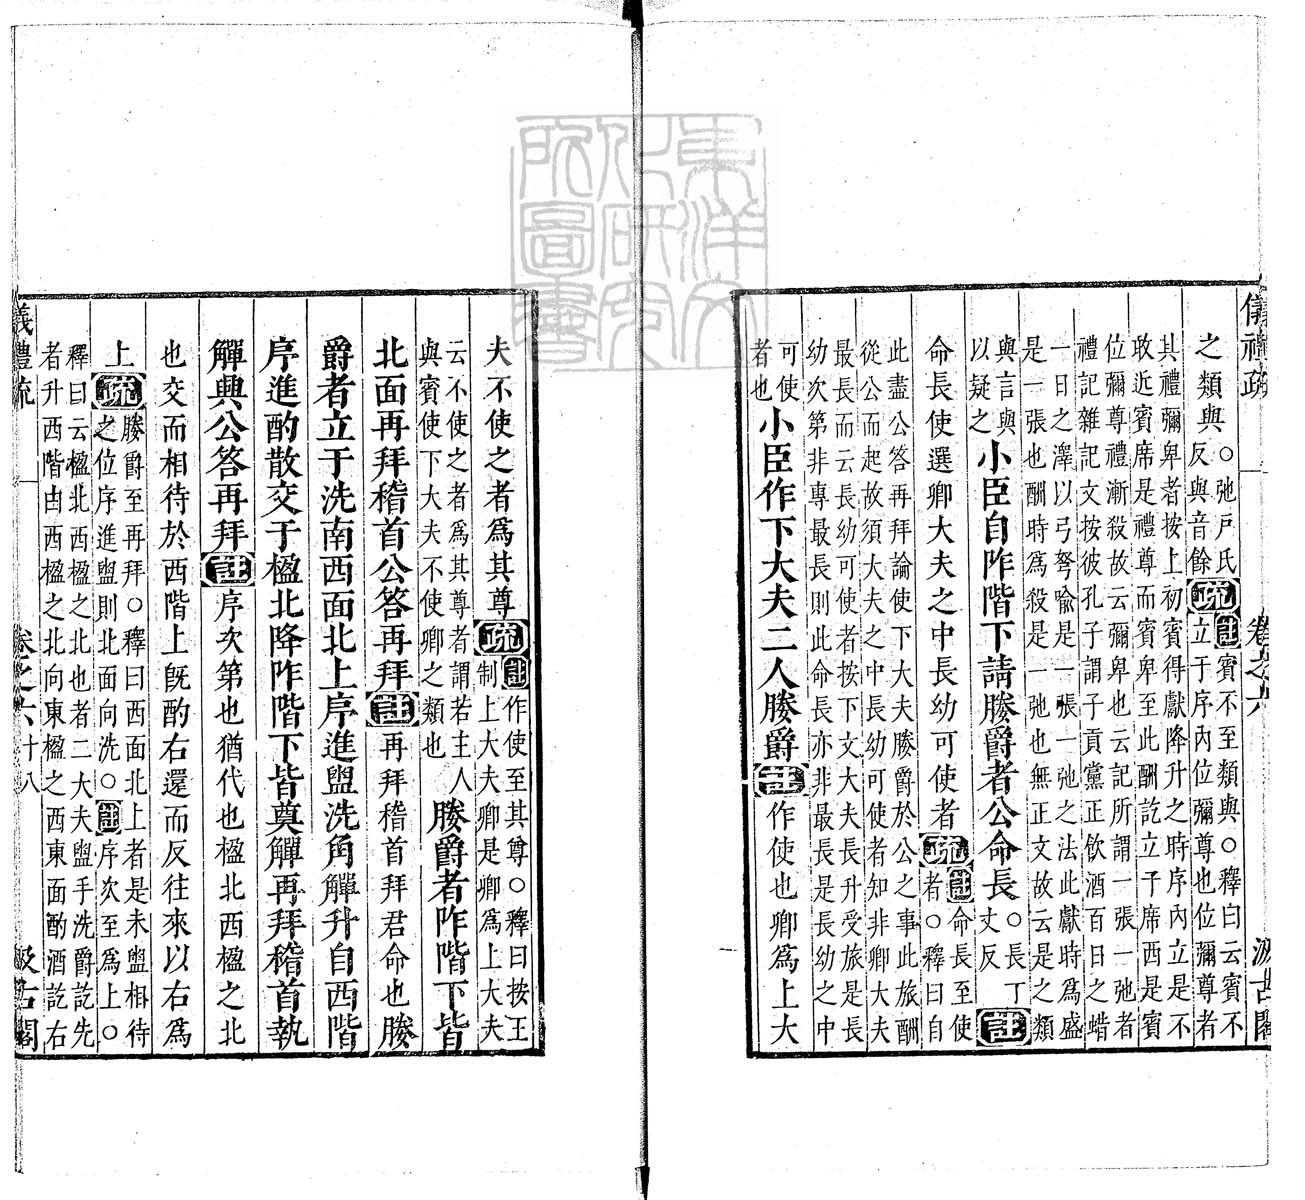 儀禮疏 卷之六 汲古閣
之類與○弛戸氏
反與音餘疏註賓不至類與○釋曰云賓不
立于序內位彌尊也位彌尊者
其禮彌卑者按上初賓得獻降升之時序內立是不
敢近賓席是禮尊而賓卑至此酬訖立于席西是賓
位彌尊禮漸殺故云彌卑也云記所謂一張一弛者
禮記雜記文按彼孔子謂子貢黨正飲酒百日之蜡
一日之澤以弓弩喻是一張一弛之法此獻時為盛
是一張也酬時為殺是一弛也無正文故云是之類
與言與
以疑之小臣自阼階下請媵爵者公命長○長丁
丈反註
命長使選卿大夫之中長幼可使者疏註命長至使
者○釋曰自
此盡公答再拜論使下大夫媵爵於公之事此旅酬
從公而起故須大夫之中長幼可使者知非卿大夫
最長而云長幼可使者按下文大夫長升受旅是長
幼次第非專最長則此命長亦非最長是長幼之中
可使
者也小臣作下大夫二人媵爵註作使也卿為上大
夫不使之者為其尊疏註作使至其尊○釋曰按王
制上大夫卿是卿為上大夫
云不使之者為其尊者謂若主人
與賓使下大夫不使卿之類也媵爵者阼階下皆
北面再拜稽首公答再拜註再拜稽首拜君命也媵
爵者立于洗南西面北上序進盥洗角觶升自西階
序進酌散交于楹北降阼階下皆奠觶再拜稽首執
觶興公答再拜註序次第也猶代也楹北西楹之北
也交而相待於西階上既酌右還而反往來以右為
上疏媵爵至再拜○釋曰西面北上者是未盥相待
之位序進盥則北面向洗○註序次至為上○
釋曰云楹北西楹之北也者二大夫盥手洗爵訖先
者升西階由西楹之北向東楹之西東面酌酒訖右
儀禮疏 卷之六 十八 汲古閣
東洋文
化研究
所圖書